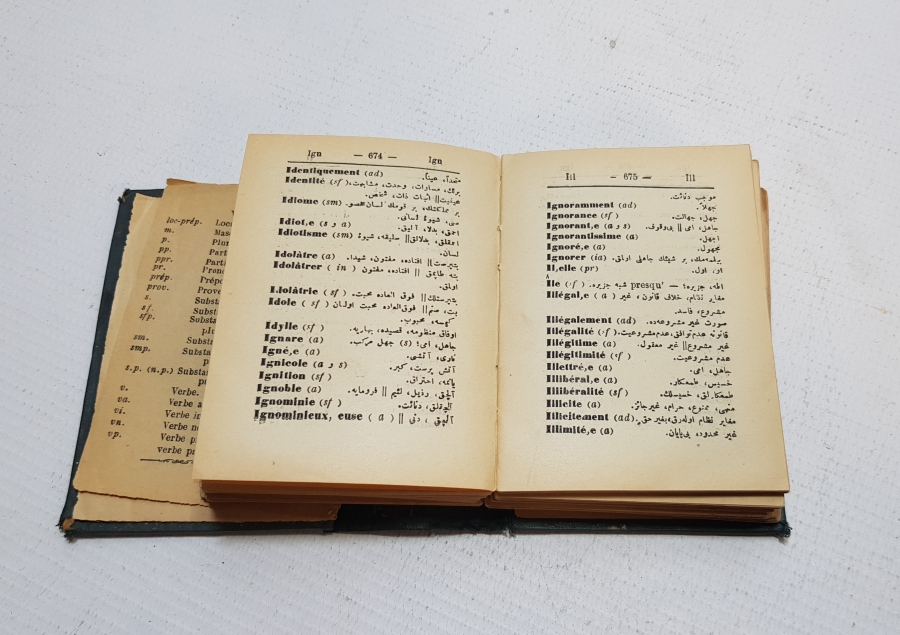 loc-prép.
m.
p.
pp.
ppr.
pr.
prép.
prov.
s.
sf.
sfp.
sm.
smp.
s.p. (n.p.)
v. Verbe.
va. Verbe
vi. Verbe
vn. Verbe
vp. Verbe
verbe
Ign — 674 — Ign
Identiquement (ad)
Identité (sf) برلك، مساوات، وحدت، مشابهت،
عینیت || اثبات ذات، شخص.
Idiome (sm)
Idiot,e (s و a) احمق، بدلا، آلیق.
Idiotisme (sm) احمقلق، بدلالق || سلیقه، شیوهٔ
لسان.
Idolâtre (a) بتپرست || افتاده، مفتون، شیدا.
Idolâtrer (in) افتاده، مفتون
اولمق.
Idolâtrie (sf) بتپرستلك || فوق العاده محبت.
Idole (sf) بت، صنم || فوق العاده محبت اولنان
کیمسه، محبوب.
Idylle (sf) اوفاق منظومه، قصیده، بهاریه.
Ignare (a) جاهل، امی؛ (s) جهل مرکب.
Igné,e (a) ناری، آتشی.
Ignicole (a و s) آتش پرست، کبر.
Ignition (sf) یاقمه، احتراق.
Ignoble (a) آلچق، رذیل، لئیم || فرومایه.
Ignominie (sf) آلچقلق، دنائت.
Ignominieux, euse (a) آلچق، دنی ||
Ill — 675 — Ill
موجب دنائت.
Ignoramment (ad) جهلاً.
Ignorance (sf) جهل، جهالت.
Ignorant,e (a و s) جاهل، امی || بی وقوف.
Ignorantissime (a) اجهل.
Ignoré,e (a) مجهول.
Ignorer (ia) بیلمه‌مك، بر شیئك جاهلی اولمق.
Il,elle (pr) او، اول.
Île (sf) اطه، جزیره؛ — presqu' شبه جزیره.
Illégal,e (a) مغایر نظام، خلاف قانون، غیر
مشروع، فاسد.
Illégalement (ad) صورت غیر مشروعه‌ده.
Illégalité (sf) قانونه عدم توافق، عدم مشروعیت.
Illégitime (a) غیر مشروع || غیر معقول.
Illégitimité (sf) عدم مشروعیت.
Illettré,e (a) جاهل، امی.
Illibéral,e (a) خسیس، طمعکار.
Illibéralité (sf) طمعکارلق، خسیسلك.
Illicite (a) منهی، ممنوع، حرام، غیر جائز.
Illicitement (ad) مغایر نظام اوله‌رق، بغیر حق
Illimité,e (a) غیر محدود، بی پایان.